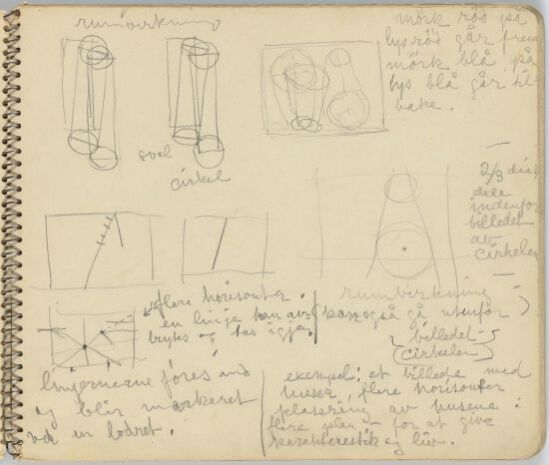 rumvirkning
mörk röd på
lys röd går frem
mörk blå på
lys blå går til-
bake.
oval
cirkel
2/3 dis
dele
indenfor
billedet
av
cirkelen
flere horisonter.
en linje kan av-
brytes - tas igjen
rumvirkning
(kan også gå utenfor)
billedet
(cirkelen)
linjernene föres ind
og blir markeret
ved en lodret.
exempel: et billede med
huser, flere horisonter
plasering av husene i
flere plan - for at give
karakteristik og liv.